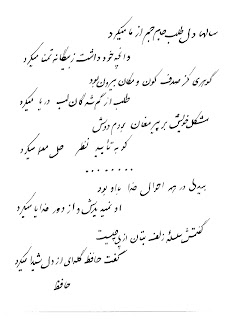 سالها دل طلب جام جم از ما میکرد
وانچه خود داشت ز بیگانه تمنا میکرد
گوهری کز صدف کون و مکان بیرون بود
طلب از گم شدگان لب دریا میکرد
مشکل خویش بر پیر مغان بردم دوش
کو به تأیید نظر حل معما میکرد
........
بیدلی در همه احوال خدا با او بود
او نمیدیدش و از دور خدایا میکرد
گفتمش سلسله زلف بتان از پی چیست
گفت حافظ گله‌ای از دل شیدا میکرد
حافظ